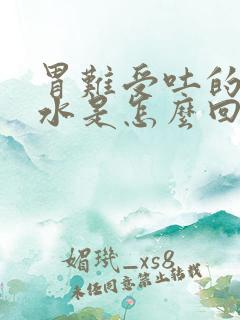 胃難受吐的
水是怎麼回
媚璣_xs8
未经同意禁止转载